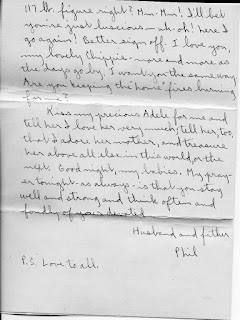 117 lb. figure right? Mm-Mm! I'll bet
you're just luscious — uh-oh! here I
go again! Better sign off. I love you,
my lovely Chippie - more and more as
the days go by. I want you the same way.
Are you keeping the home fires burning
for me?
Kiss my precious Adele for me and
tell her I love her very much; tell her, too,
that I adore her mother, and treasure
her above all else in this world or the
next. Good night, my babies. My pray-
er tonight - as always - is that you stay
well and strong and think often and
fondly of your devoted
Husband and father
Phil
P.S. Love to all.